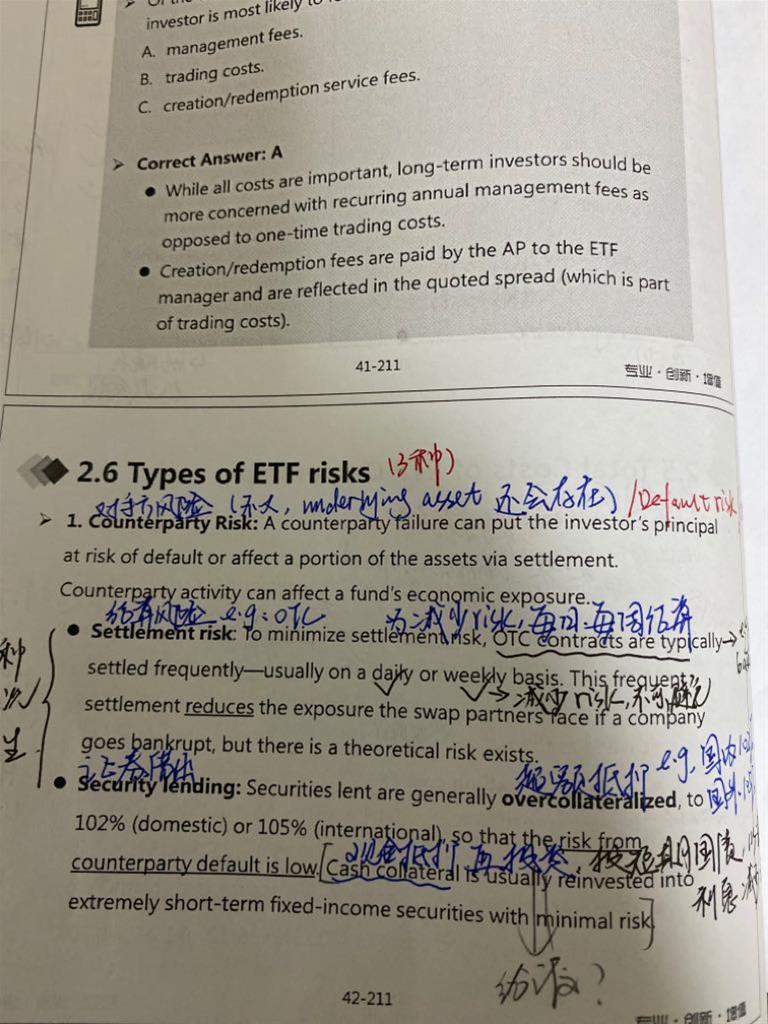 investor is most likely to
A. management fees.
B. trading costs.
C. creation/redemption service fees.
➢ Correct Answer: A
● While all costs are important, long-term investors should be
more concerned with recurring annual management fees as
opposed to one-time trading costs.
● Creation/redemption fees are paid by the AP to the ETF
manager and are reflected in the quoted spread (which is part
of trading costs).
41-211
专业·创新·增值
2.6 Types of ETF risks (3种)
对手方风险 (不大, underlying asset 还会存在) /Default risk
➢ 1. Counterparty Risk: A counterparty failure can put the investor's principal
at risk of default or affect a portion of the assets via settlement.
Counterparty activity can affect a fund's economic exposure.
结算风险 e.g: OTC 为减少risk, 每日、每周结算
● Settlement risk: To minimize settlement risk, OTC contracts are typically
settled frequently—usually on a daily or weekly basis. This frequent
减少risk,
settlement reduces the exposure the swap partners face if a company
goes bankrupt, but there is a theoretical risk exists.
证券借出 超额抵押 e.g. 国内102
● Security lending: Securities lent are generally overcollateralized, to
102% (domestic) or 105% (international), so that the risk from
现金抵押 再投资,
counterparty default is low. [Cash collateral is usually reinvested into
利息
extremely short-term fixed-income securities with minimal risk]
42-211
专业·创新·增值